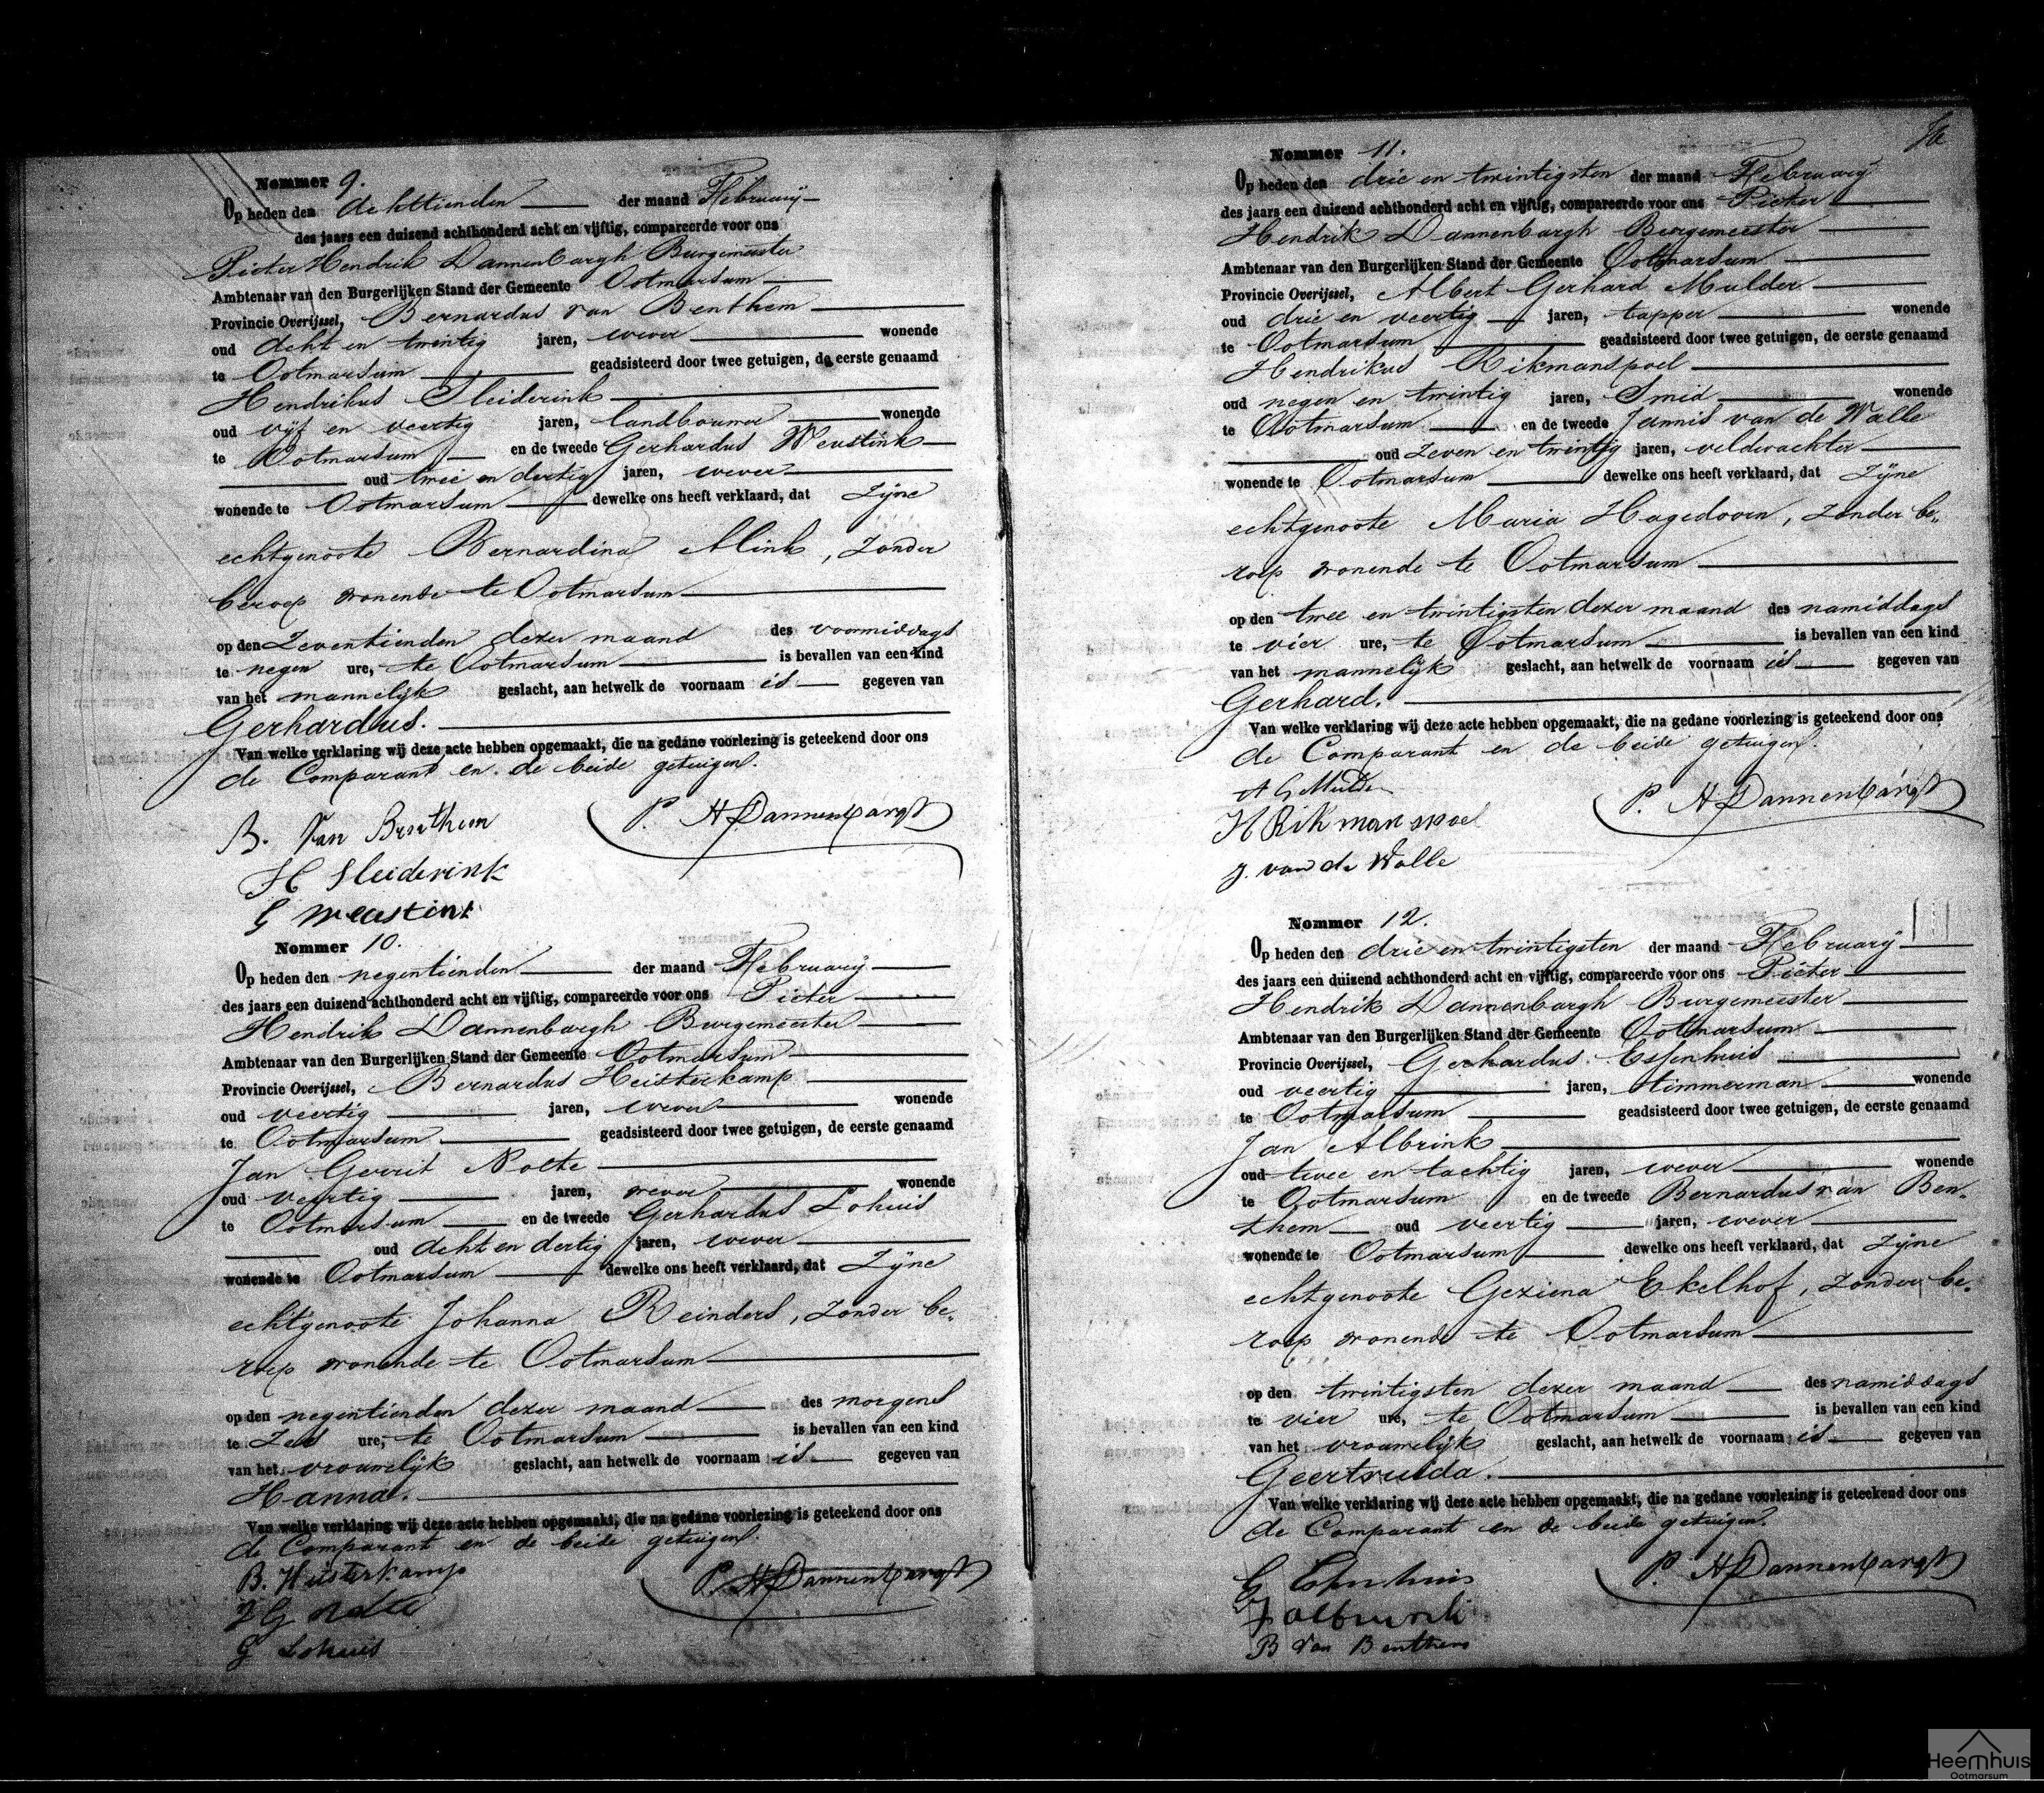 Nommer 9.
Op heden den achttienden der maand February
des jaars een duizend achthonderd acht en vijftig, compareerde voor ons
Pieter Hendrik Dannenbargh Burgemeester
Ambtenaar van den Burgerlijken Stand der Gemeente Ootmarsum
Provincie Overijssel, Bernardus van Benthem
oud acht en twintig jaren, wever wonende
te Ootmarsum geadsisteerd door twee getuigen, de eerste genaamd
Hendrikus Sleiderink
oud vijf en veertig jaren, landbouwer wonende
te Ootmarsum en de tweede Gerhardus Weustink
oud twee en dertig jaren, wever
wonende te Ootmarsum dewelke ons heeft verklaard, dat Zijne
echtgenoote Bernardina Mink, zonder
beroep wonende te Ootmarsum
op den Zeventienden dezer maand des voormiddags
te negen ure, te Ootmarsum is bevallen van een kind
van het mannelijk geslacht, aan hetwelk de voornaam is gegeven van
Gerhardus.
Van welke verklaring wij deze acte hebben opgemaakt, die na gedane voorlezing is geteekend door ons
de Comparant en de beide getuigen.
B. Van Benthem P. H Dannenbargh
H Sleiderink
G Weustink
Nommer 10.
Op heden den negentienden der maand February
des jaars een duizend achthonderd acht en vijftig, compareerde voor ons Pieter
Hendrik Dannenbargh Burgemeester
Ambtenaar van den Burgerlijken Stand der Gemeente Ootmarsum
Provincie Overijssel, Bernardus Heisterkamp
oud veertig jaren, wever wonende
te Ootmarsum geadsisteerd door twee getuigen, de eerste genaamd
Jan Gerrit Nolte
oud veertig jaren, wever wonende
te Ootmarsum en de tweede Gerhardus Lohuis
oud acht en dertig jaren, wever
wonende te Ootmarsum dewelke ons heeft verklaard, dat Zijne
echtgenoote Johanna Reinders, zonder be„
roep wonende te Ootmarsum
op den negentienden dezer maand des morgens
te Zes ure, te Ootmarsum is bevallen van een kind
van het vrouwelijk geslacht, aan hetwelk de voornaam is gegeven van
Hanna.
Van welke verklaring wij deze acte hebben opgemaakt, die na gedane voorlezing is geteekend door ons
de Comparant en de beide getuigen.
B. Heisterkamp P. H Dannenbargh
J G Nolte
G Lohuis
Nommer 11.
Op heden den drie en twintigsten der maand February
des jaars een duizend achthonderd acht en vijftig, compareerde voor ons Pieter
Hendrik Dannenbargh Burgemeester
Ambtenaar van den Burgerlijken Stand der Gemeente Ootmarsum
Provincie Overijssel, Albert Gerhard Mulder
oud drie en veertig jaren, tapper wonende
te Ootmarsum geadsisteerd door twee getuigen, de eerste genaamd
Hendrikus Rikmanspoel
oud negen en twintig jaren, Smid wonende
te Ootmarsum en de tweede Jannis van de Walle
oud zeven en twintig jaren, veldwachter
wonende te Ootmarsum dewelke ons heeft verklaard, dat Zijne
echtgenoote Maria Hagedoorn, zonder be„
roep wonende te Ootmarsum
op den twee en twintigsten dezer maand des namiddags
te vier ure, te Ootmarsum is bevallen van een kind
van het mannelijk geslacht, aan hetwelk de voornaam is gegeven van
Gerhard.
Van welke verklaring wij deze acte hebben opgemaakt, die na gedane voorlezing is geteekend door ons
de Comparant en de beide getuigen.
A G Mulder P. H Dannenbargh
H Rikmanspoel
J. van de Walle
Nommer 12.
Op heden den drie en twintigsten der maand February
des jaars een duizend achthonderd acht en vijftig, compareerde voor ons Pieter
Hendrik Dannenbargh Burgemeester
Ambtenaar van den Burgerlijken Stand der Gemeente Ootmarsum
Provincie Overijssel, Gerhardus Essenhuis
oud veertig jaren, timmerman wonende
te Ootmarsum geadsisteerd door twee getuigen, de eerste genaamd
Jan Albrink
oud twee en tachtig jaren, wever wonende
te Ootmarsum en de tweede Bernardus van Ben„
them oud veertig jaren, wever
wonende te Ootmarsum dewelke ons heeft verklaard, dat Zijne
echtgenoote Geziena Ekelhof, zonder be„
roep wonende te Ootmarsum
op den twintigsten dezer maand des namiddags
te vier ure, te Ootmarsum is bevallen van een kind
van het vrouwelijk geslacht, aan hetwelk de voornaam is gegeven van
Geertruida.
Van welke verklaring wij deze acte hebben opgemaakt, die na gedane voorlezing is geteekend door ons
de Comparant en de beide getuigen.
G Essenhuis P. H Dannenbargh
J albrink
B Van Benthem
Heemhuis
Ootmarsum